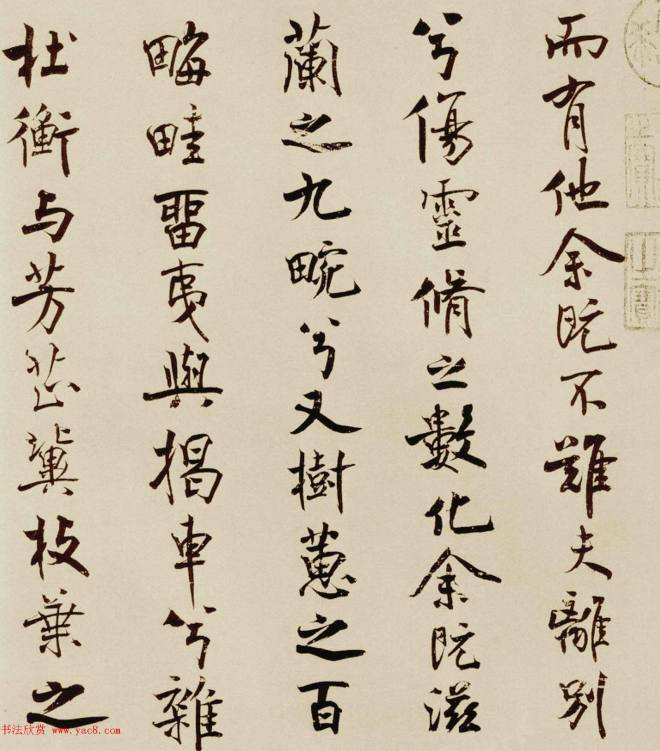 而有他余既不難夫離別
兮傷靈脩之數化余既滋
蘭之九畹兮又樹蕙之百
畮畦留夷與揭車兮雜
杜衡与芳芷冀枝葉之
书法欣赏 www.yac8.com